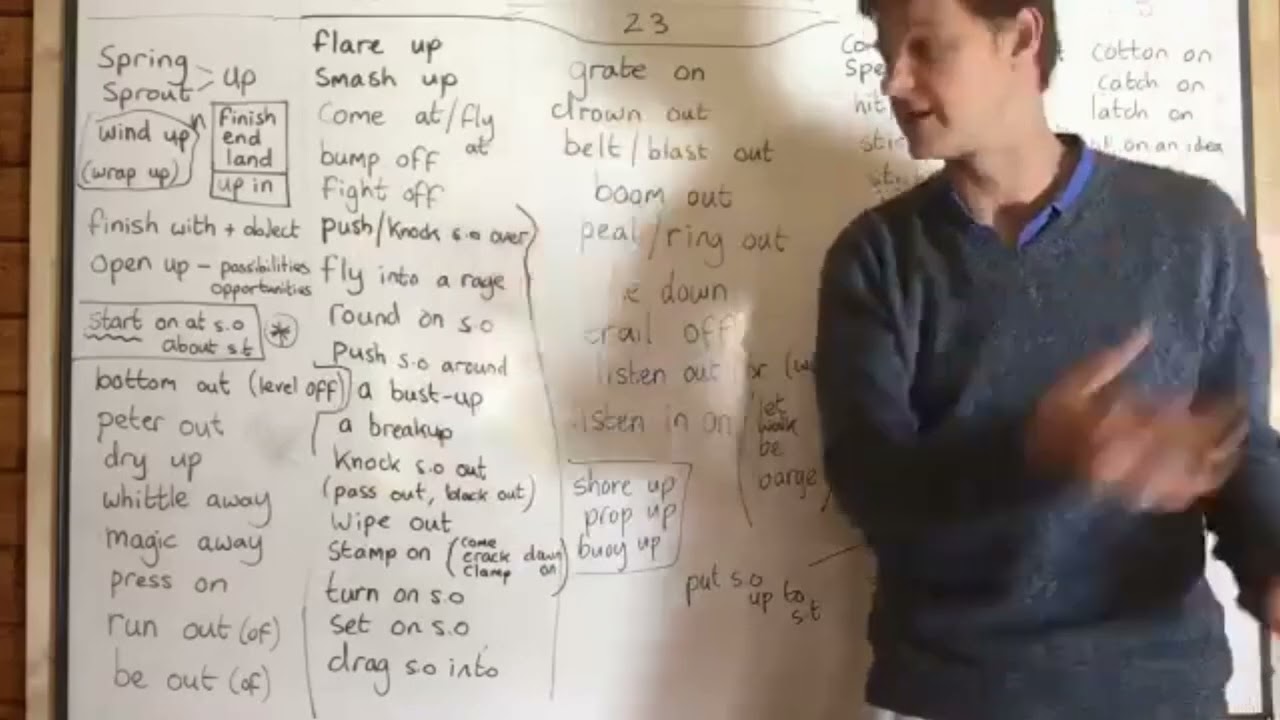 Spring
Sprout > up
wind up
(wrap up)
in
finish
end
land
up in
finish with + object
open up - possibilities
opportunities
start on at s.o
about s.t
*
bottom out (level off)
peter out
dry up
whittle away
magic away
press on
run out (of)
be out (of)
flare up
Smash up
Come at/fly
at
bump off
fight off
push/knock s.o over
fly into a rage
round on s.o
push s.o around
a bust-up
a breakup
knock s.o out
(pass out, black out)
wipe out
stamp on (come
crack down
clamp on)
turn on s.o
set on s.o
drag s.o into
23
grate on
drown out
belt/blast out
boom out
peal/ring out
down
trail off
listen out
listen in on
let
walk
be
barge
shore up
prop up
buoy up
put s.o
up to
s.t
hit
cotton on
catch on
latch on
on an idea